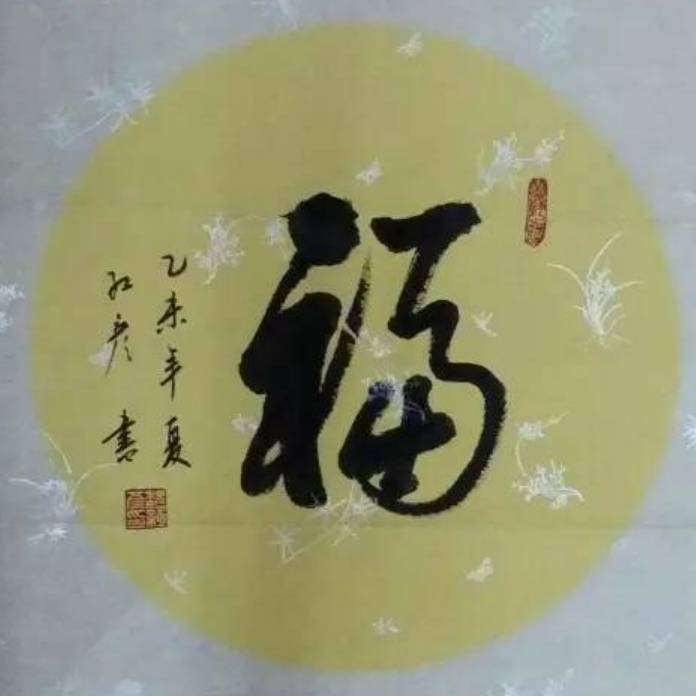 福
乙未年夏
红彦 书